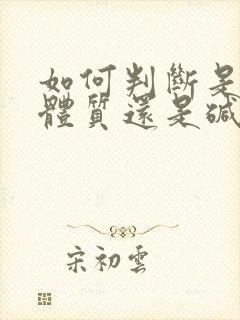 如何判斷是
體質還是碱
宋初雲